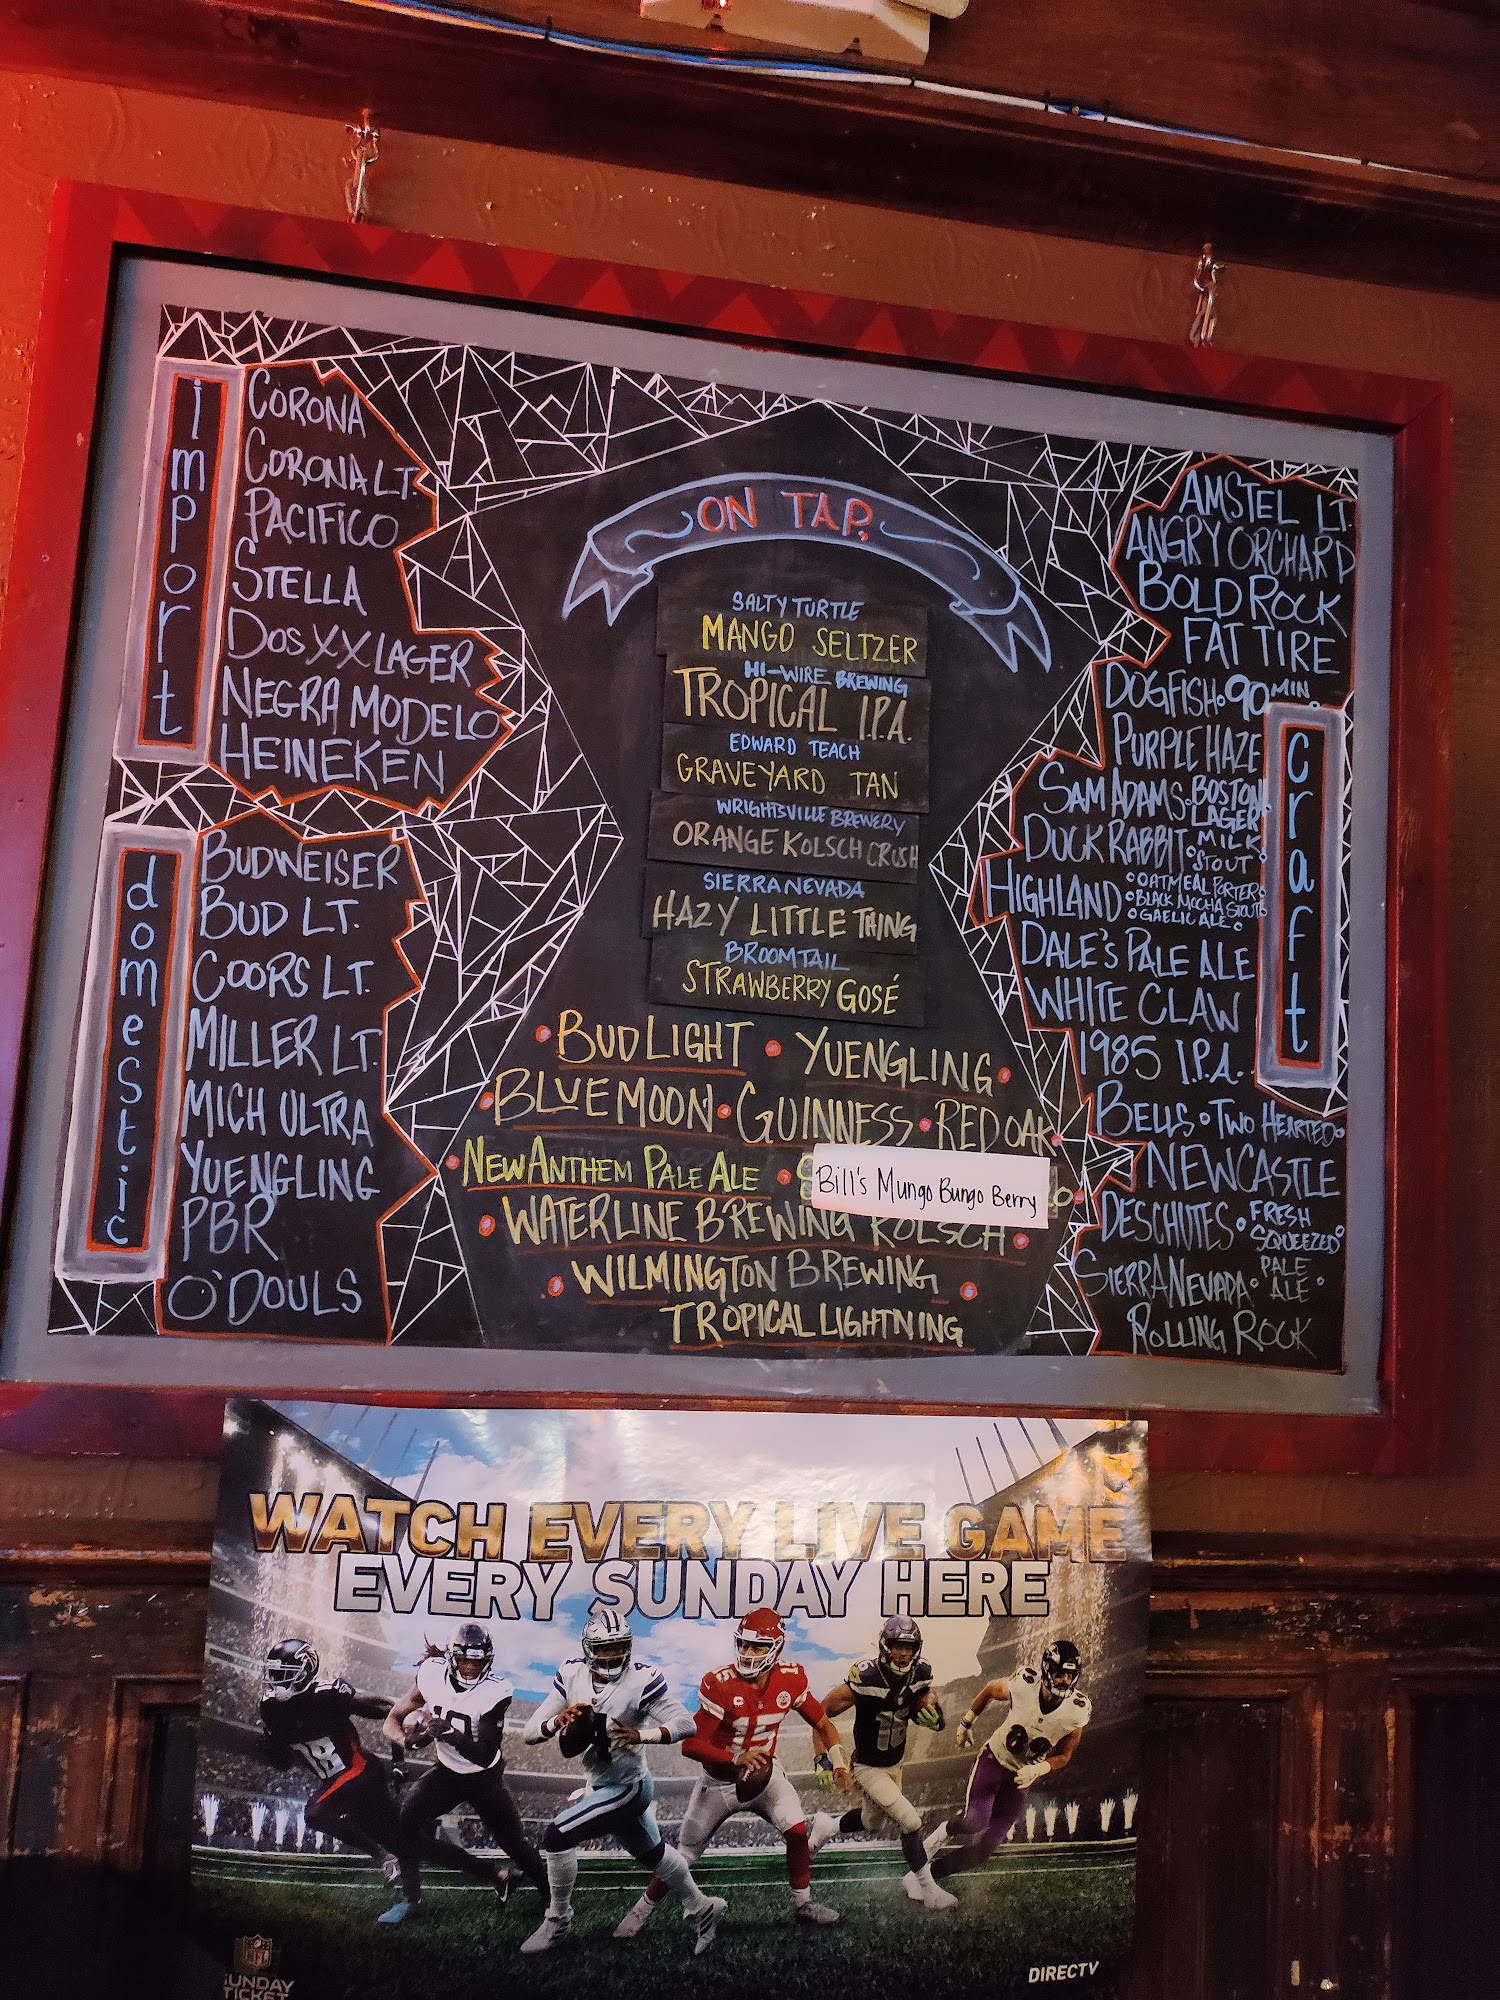 import
CORONA
CORONA LT.
PACIFICO
STELLA
DOS XX LAGER
NEGRA MODELO
HEINEKEN
domestic
BUDWEISER
BUD LT.
COORS LT.
MILLER LT.
MICH ULTRA
YUENGLING
PBR
O'DOULS
ON TAP.
SALTY TURTLE
MANGO SELTZER
HI-WIRE BREWING
TROPICAL I.P.A.
EDWARD TEACH
GRAVEYARD TAN
WRIGHTSVILLE BREWERY
ORANGE KOLSCH CRUSH
SIERRA NEVADA
HAZY LITTLE THING
BROOMTAIL
STRAWBERRY GOSÉ
• BUD LIGHT • YUENGLING •
• BLUE MOON • GUINNESS • RED OAK •
• NEW ANTHEM PALE ALE •
Bill's Mungo Bungo Berry
• WATERLINE BREWING KOLSCH •
• WILMINGTON BREWING •
TROPICAL LIGHTNING
craft
AMSTEL LT.
ANGRY ORCHARD
BOLD ROCK
FAT TIRE
DOGFISH • 90 MIN.
PURPLE HAZE
SAM ADAMS • BOSTON LAGER
DUCK RABBIT • MILK STOUT
HIGHLAND • OATMEAL PORTER
• BLACK MOCHA STOUT
• GAELIC ALE •
DALE'S PALE ALE
WHITE CLAW
1985 I.P.A.
BELLS • TWO HEARTED •
NEWCASTLE
DESCHUTES • FRESH SQUEEZED •
SIERRA NEVADA • PALE ALE •
ROLLING ROCK
WATCH EVERY LIVE GAME
EVERY SUNDAY HERE
18
10
4
15
16
89
NFL
SUNDAY
TICKET
DIRECTV